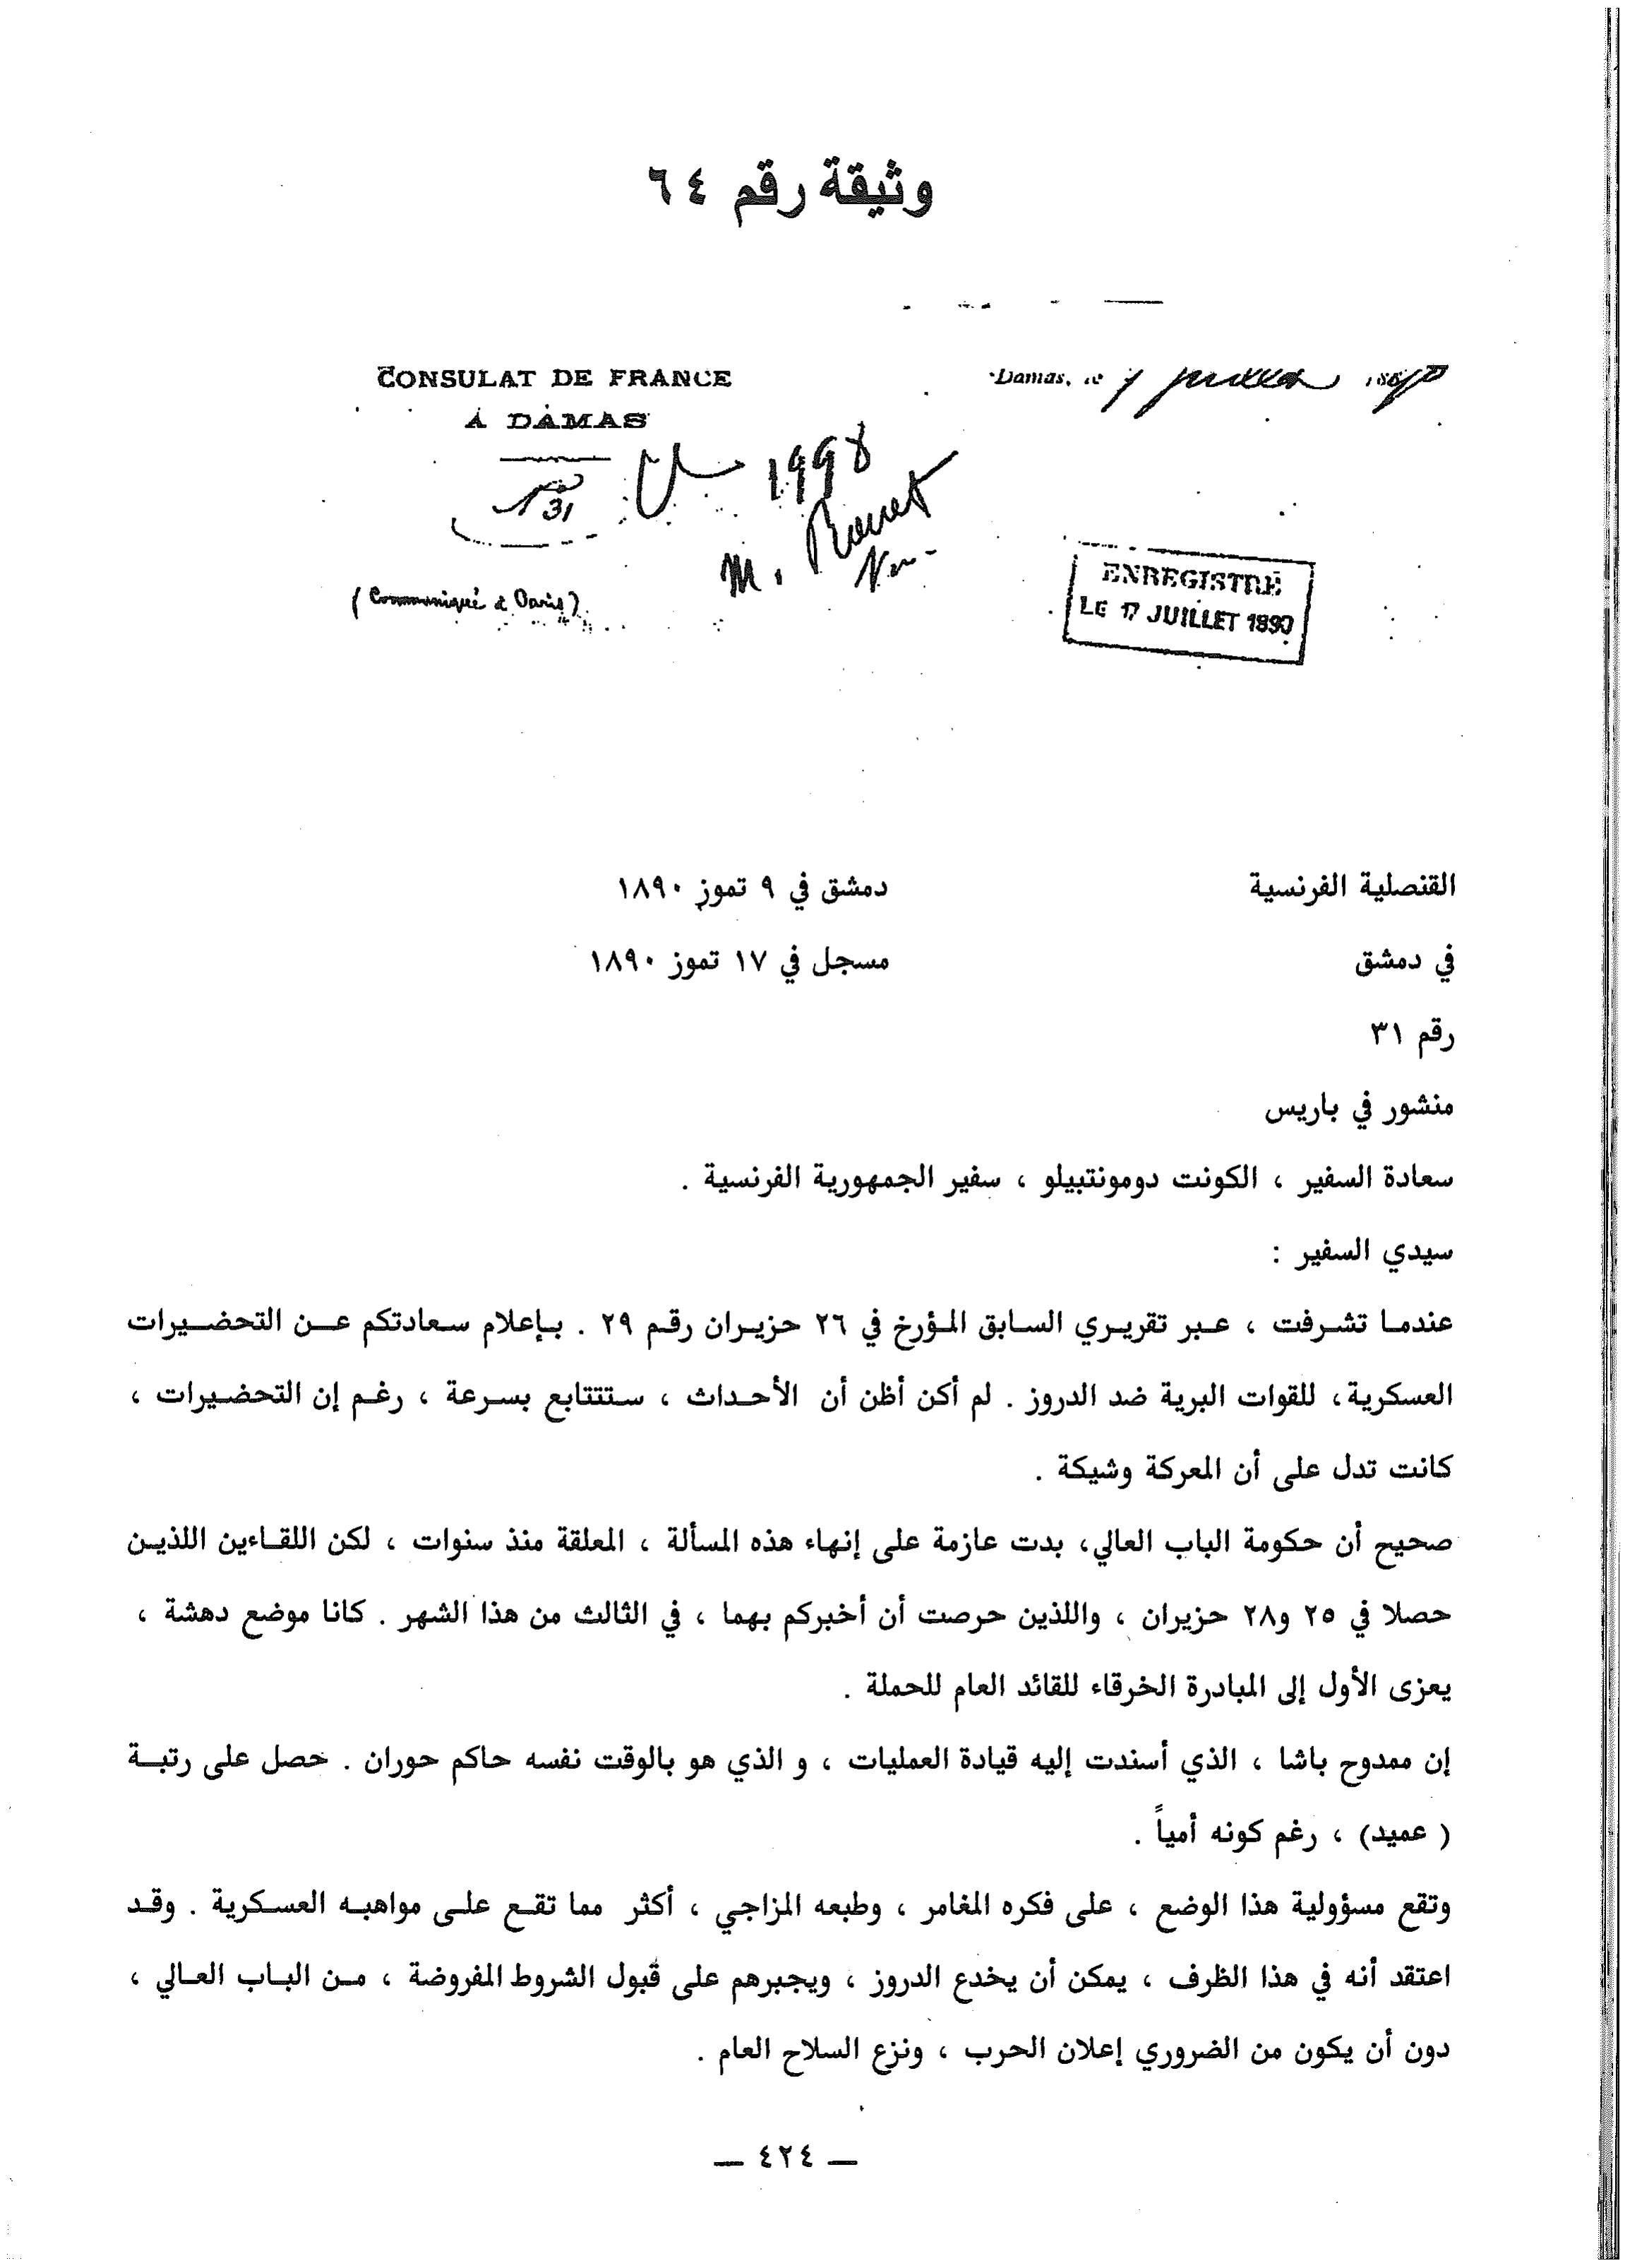 وثيقة رقم ٦٤
CONSULAT DE FRANCE
A DAMAS
Damas, le 9 juillet 1890
N° 31
1998
M.
(Communiqué à Paris)
ENREGISTRÉ
LE 17 JUILLET 1890
القنصلية الفرنسية دمشق في ٩ تموز ١٨٩٠
في دمشق مسجل في ١٧ تموز ١٨٩٠
رقم ٣١
منشور في باريس
سعادة السفير ، الكونت دومونتبيلو ، سفير الجمهورية الفرنسية .
سيدي السفير :
عندما تشرفت ، عبر تقريري السابق المؤرخ في ٢٦ حزيران رقم ٢٩ . بإعلام سعادتكم عن التحضيرات
العسكرية، للقوات البرية ضد الدروز . لم أكن أظن أن الأحداث ، ستتتابع بسرعة ، رغم إن التحضيرات ،
كانت تدل على أن المعركة وشيكة .
صحيح أن حكومة الباب العالي، بدت عازمة على إنهاء هذه المسألة ، المعلقة منذ سنوات ، لكن اللقاءين اللذين
حصلا في ٢٥ و٢٨ حزيران ، واللذين حرصت أن أخبركم بهما ، في الثالث من هذا الشهر . كانا موضع دهشة ،
يعزى الأول إلى المبادرة الخرقاء للقائد العام للحملة .
إن ممدوح باشا ، الذي أسندت إليه قيادة العمليات ، و الذي هو بالوقت نفسه حاكم حوران . حصل على رتبة
( عميد) ، رغم كونه أمياً .
وتقع مسؤولية هذا الوضع ، على فكره المغامر ، وطبعه المزاجي ، أكثر مما تقع على مواهبه العسكرية . وقد
اعتقد أنه في هذا الظرف ، يمكن أن يخدع الدروز ، ويجبرهم على قبول الشروط المفروضة ، من الباب العالي ،
دون أن يكون من الضروري إعلان الحرب ، ونزع السلاح العام .
— ٤٢٤ —